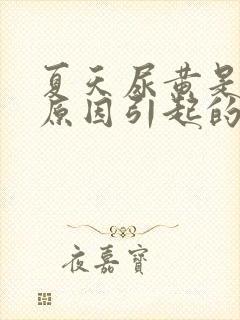 夏天尿黄是
原因引起的
夜嘉寶